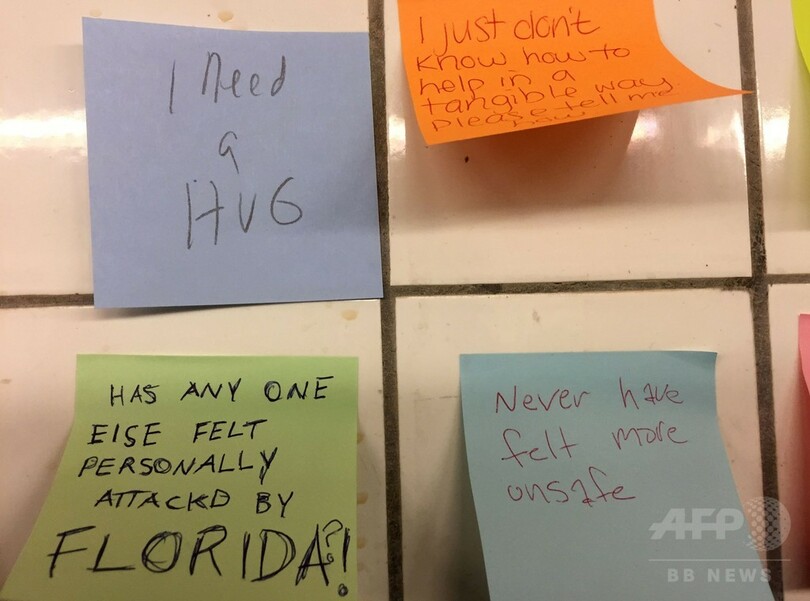 I need
a
HUG
I just don't
know how to
help in a
tangible way
please tell me
how
HAS ANY ONE
ElSE FELT
PERSONALLY
ATTACKD BY
FLORIDA?!
Never have
felt more
unsafe
AFP
BB NEWS